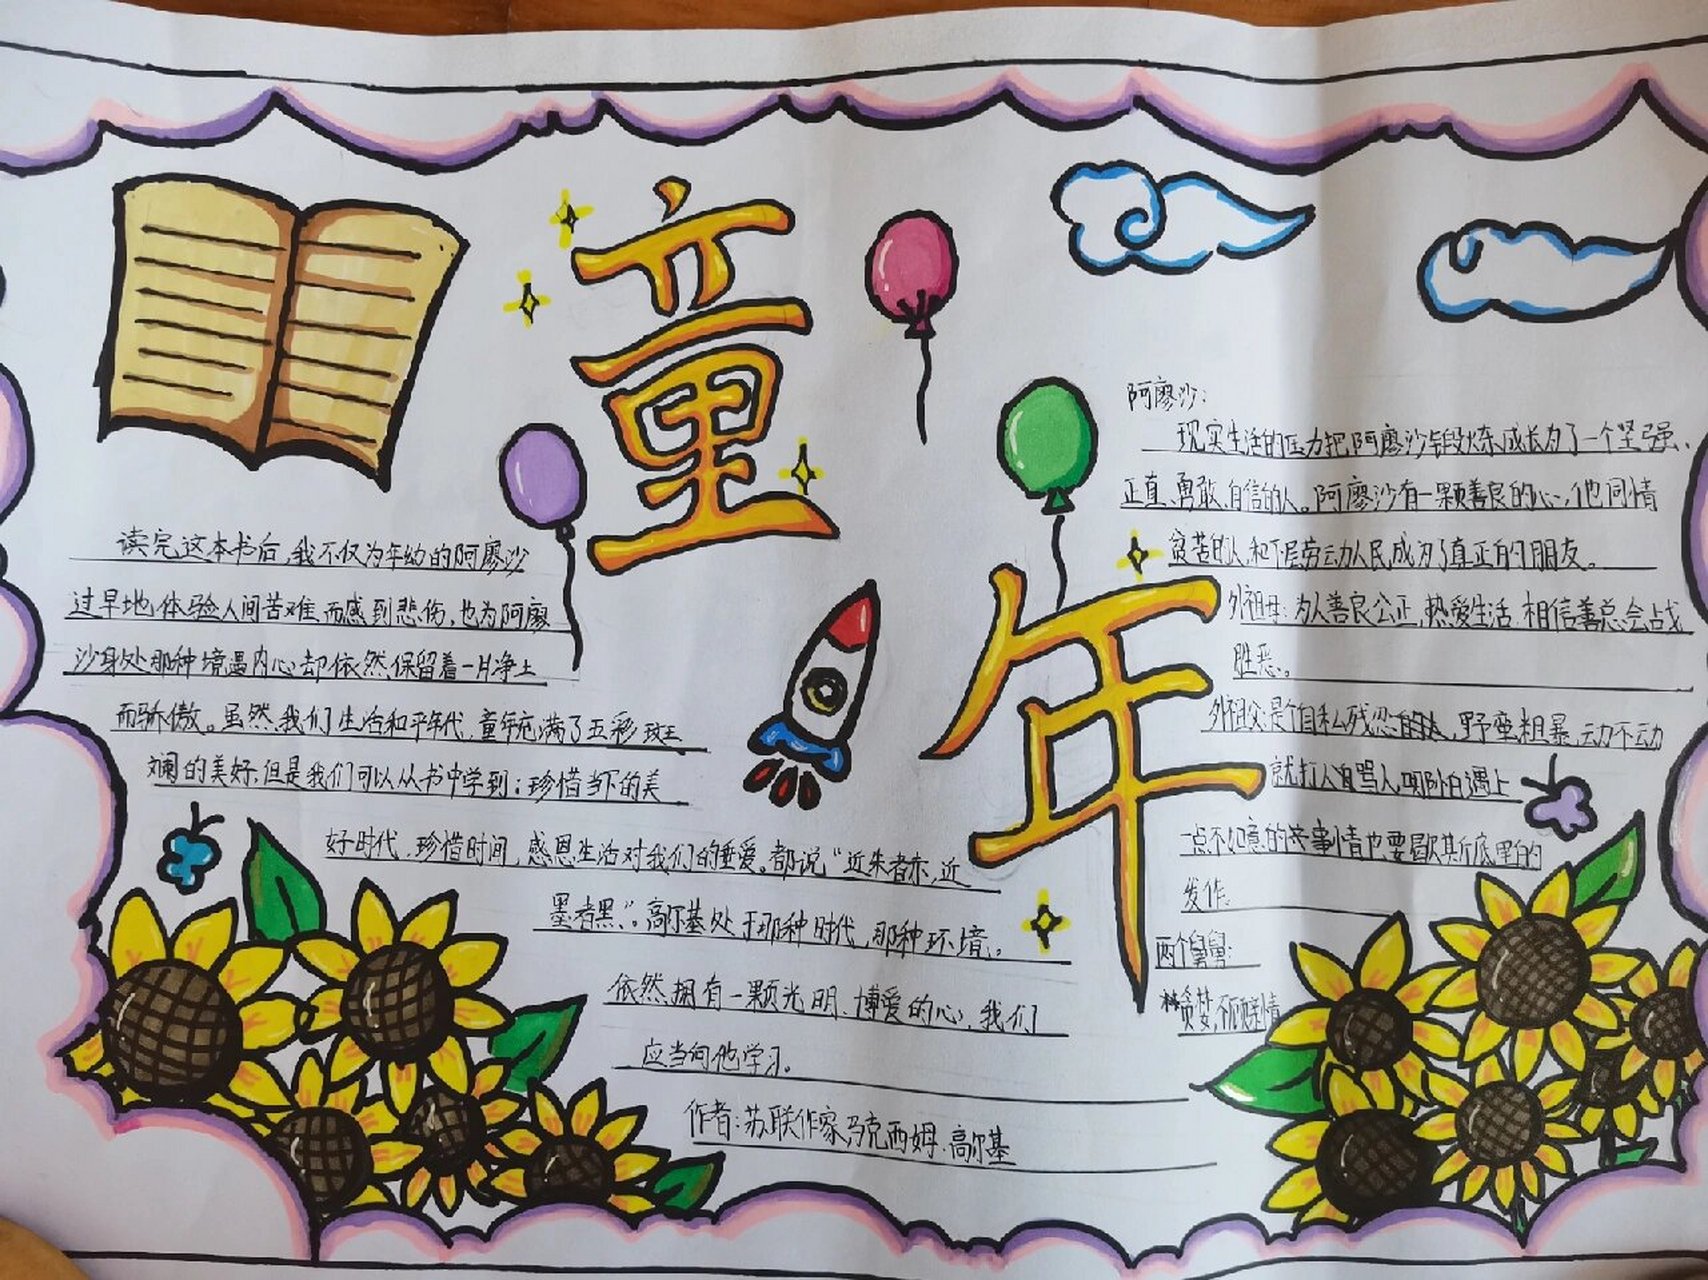 童年
读完这本书后,我不仅为年幼的阿廖沙
过早地体验人间苦难而感到悲伤,也为阿廖
沙身处那种境遇内心却依然保留着一片净土
而骄傲。虽然我们生活和平年代,童年充满了五彩斑
斓的美好,但是我们可以从书中学到:珍惜当下的美
好时代,珍惜时间,感恩生活对我们的垂爱。都说“近朱者赤,近
墨者黑”。高尔基处于那种时代,那种环境。
依然拥有一颗光明、博爱的心,我们
应当向他学习。
作者:苏联作家马克西姆·高尔基
阿廖沙:
现实生活的压力把阿廖沙锻炼成长为了一个坚强、
正直、勇敢、自信的人。阿廖沙有一颗善良的心,他同情
贫苦的人,和下层劳动人民成为了真正的朋友。
外祖母:为人善良公正,热爱生活,相信善总会战
胜恶。
外祖父:是个自私残忍的人,野蛮粗暴,动不动
就打人骂人,哪怕遇上
一点不如意的事情也要歇斯底里的
发作。
两个舅舅:
贪婪,不顾亲情